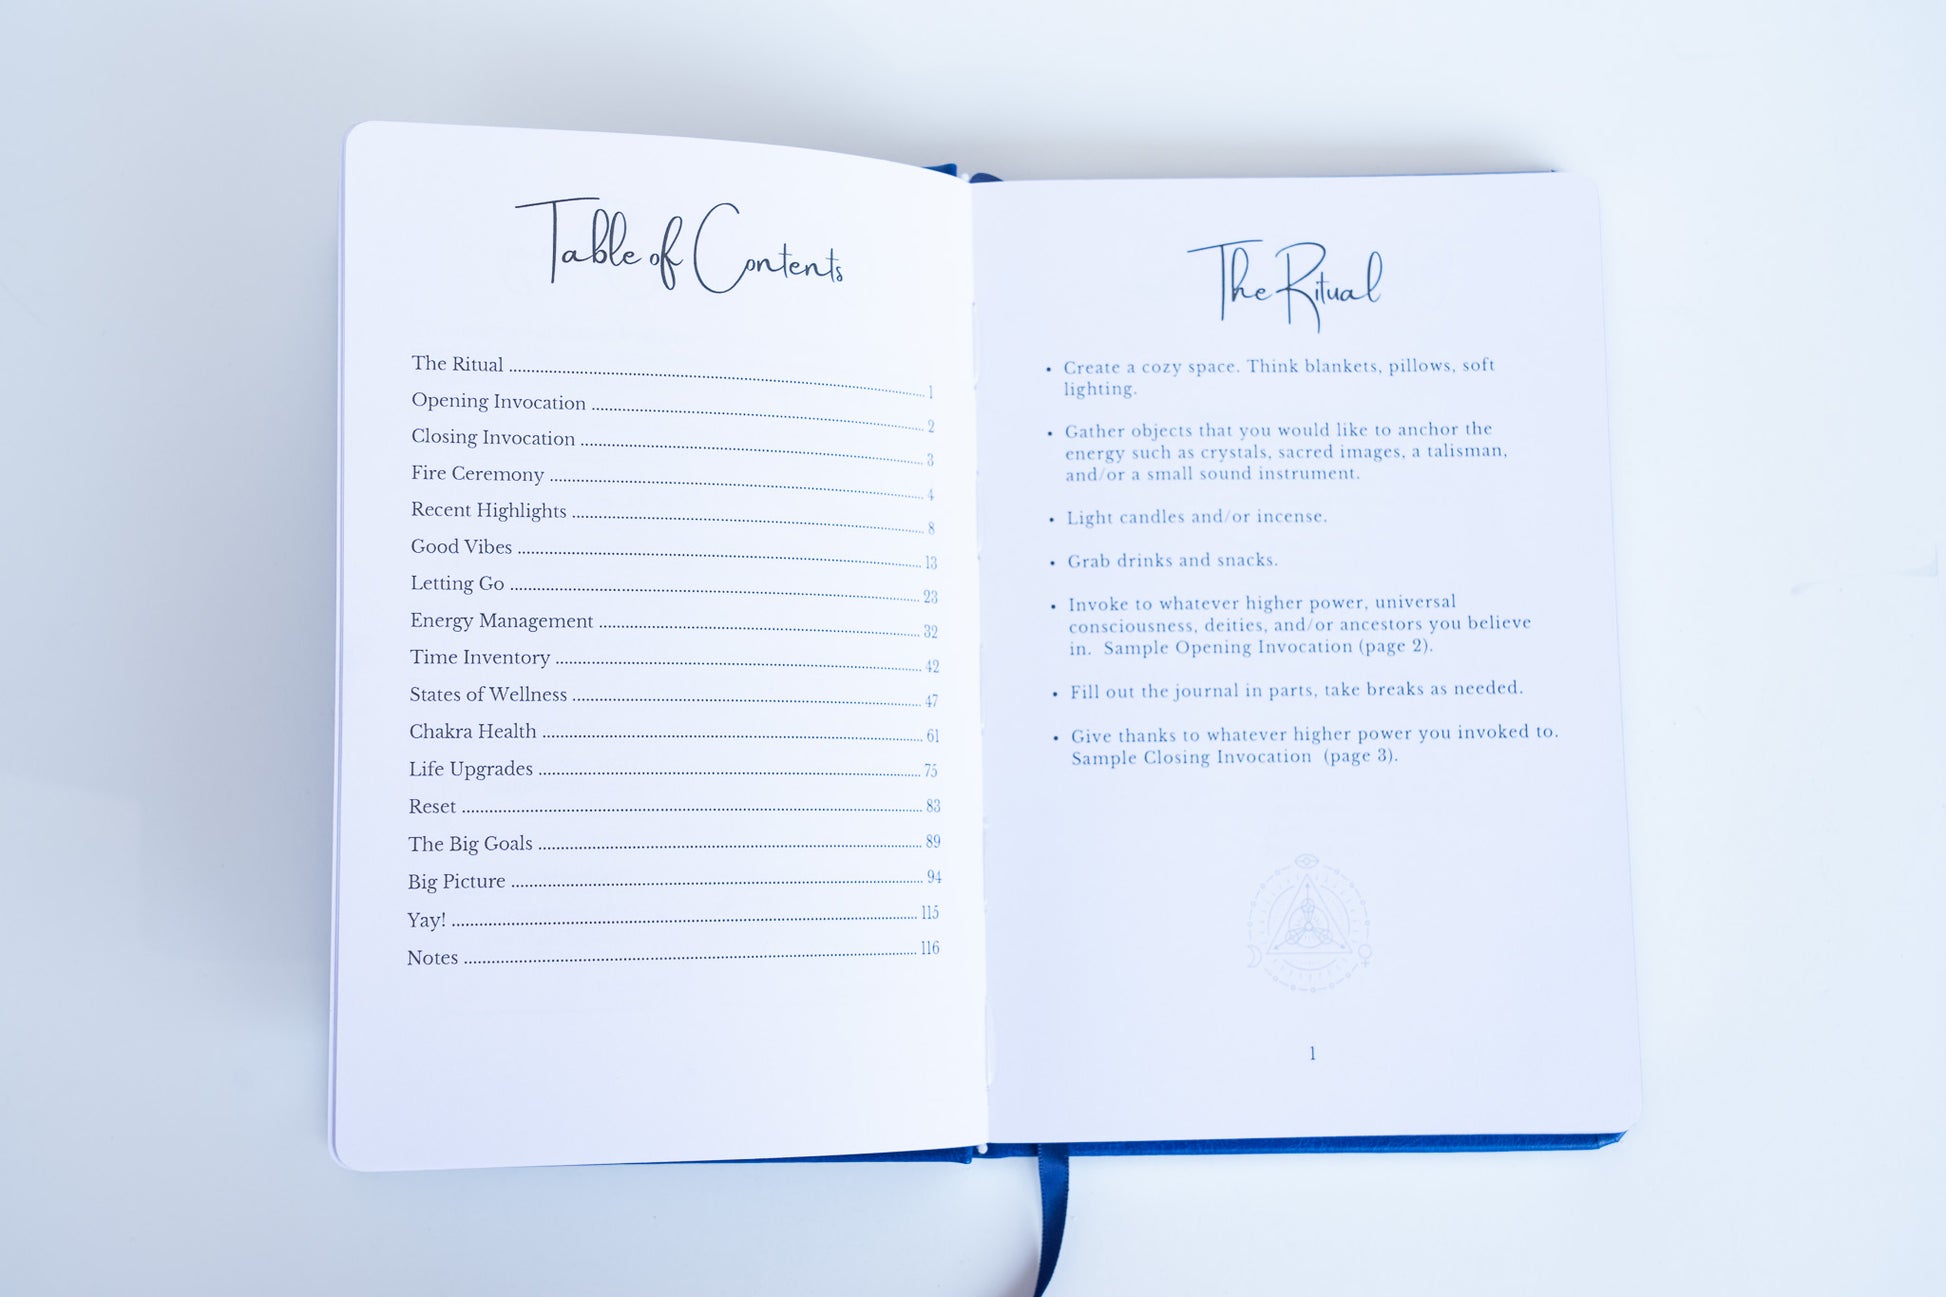 Table of Contents
The Ritual ........................ 1
Opening Invocation ........................ 2
Closing Invocation ........................ 3
Fire Ceremony ........................ 4
Recent Highlights ........................ 8
Good Vibes ........................ 13
Letting Go ........................ 23
Energy Management ........................ 32
Time Inventory ........................ 42
States of Wellness ........................ 47
Chakra Health ........................ 61
Life Upgrades ........................ 75
Reset ........................ 83
The Big Goals ........................ 89
Big Picture ........................ 94
Yay! ........................ 115
Notes ........................ 116
The Ritual
• Create a cozy space. Think blankets, pillows, soft
lighting.
• Gather objects that you would like to anchor the
energy such as crystals, sacred images, a talisman,
and/or a small sound instrument.
• Light candles and/or incense.
• Grab drinks and snacks.
• Invoke to whatever higher power, universal
consciousness, deities, and/or ancestors you believe
in. Sample Opening Invocation (page 2).
• Fill out the journal in parts, take breaks as needed.
• Give thanks to whatever higher power you invoked to.
Sample Closing Invocation (page 3).
1